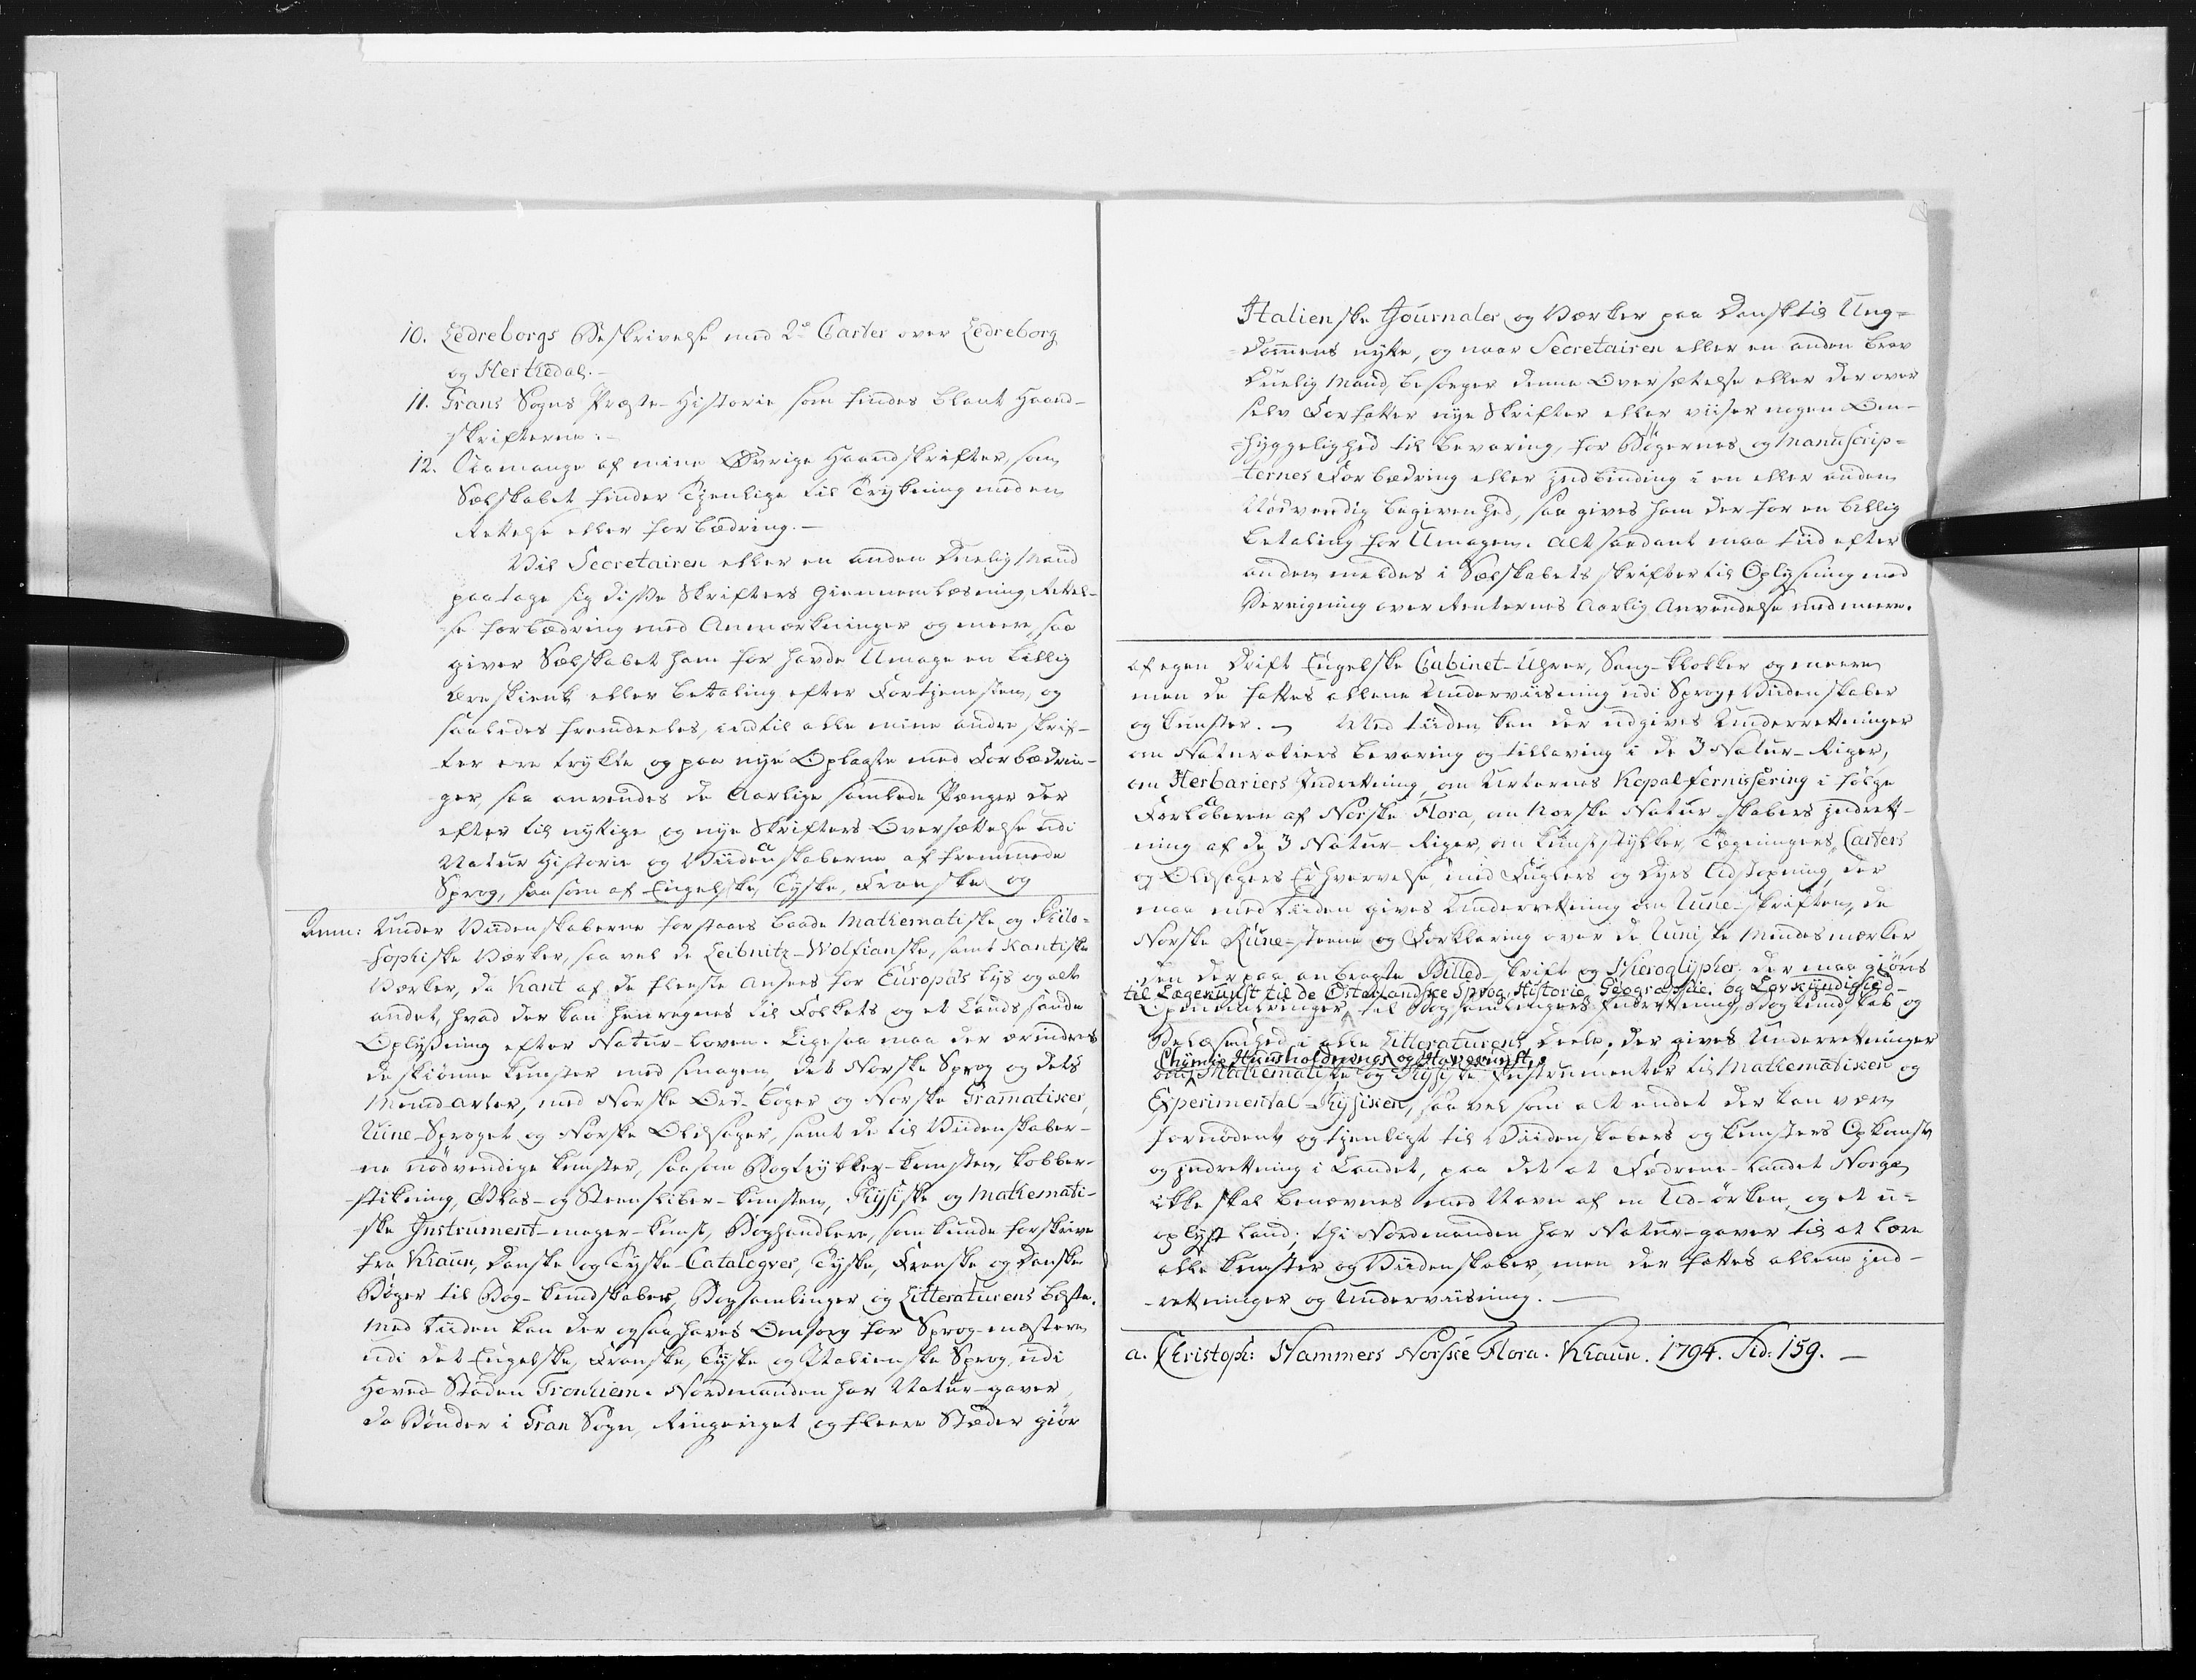 10. Ledreborgs Beskrivelse med 2de Carter over Ledreborg
og Herthedal.-
11. Grans Sogns Præste-Historie som findes blant Haand-
skrifterne.-
12. Saamange af mine Øvrige Haandskrifter, som
Selskabet finder tienlige til Trykning med en
Rettelse eller forbedring.-
Vil Secretairen eller en anden duelig Mand
paatage sig disse Skrifters Giennemlæsning Rettel-
se forbedring med Anmærkninger og meere, saa
giver Selskabet ham for havde Umage en billig
Ære skienk eller betaling efter Fortienesten, og
saaledes fremdeeles, indtil alle mine andre skrif-
ter ere trykte og paa nye Oplagte med Forbædrin-
ger, saa anvendes de Aarlige samlede Penger der
efter til nyttige og nye Skrifters Oversættelse udi
Natur Historie og Viidenskaberne af fremmede
Sprog, saa som af Engelske, Tyske, Franske og
Anm: Under Viidenskaberne forstaaes baade Mathematiske og Philo-
sophiske Værker, saa vel de Leibnitz-Wolfianske, samt Kantiske
Værker, da Kant af de fleeste ansees for Europas Lys og alt
andet, hvad der kan henregnes til Folkets og et Lands sande
Oplysning efter Natur-Loven. Ligesaa maa der erindres
de skiønne kunster med smagen, det Norske Sprog og dets
Mund-arter, med Norske Ord-bøger og Norske Gramatiker,
Rune-Sproget og Norske Oldsager, samt de til Viidenskaber-
ne nødvendige kunster, saasom Bogtrykker-kunsten, kobber-
stikning, Glas- og Steensliber-kunsten, Physiske og Mathemati-
ske Instrument-mager-kunst, Boghandlere, som kunde forskrive
fra Khavn, Danske og Tyske Catalogver, Tyske, Franske og Danske
Bøger til Bog-kundskaber, Bogsamlinger og Litteraturens beste.
Med tiiden kan der ogsaa haves Omsorg for Sprog-mestere
udi det Engelske, Franske, Tyske og Italienske Sprog, udi
Hoved Staden Tronhiem. Nordmanden har Natur-gaver,
da Bønder i Gran Sogn, Ringeriget og fleere Stæder giør
Italienske Journaler og Værker paa Dansk til Ung-
dommens nytte, og naar Secretairen eller en anden brav
duelig Mand, besørger denne Oversættelse eller der over
selv Forfatter nye Skrifter eller viiser nogen Om-
hyggelighed til bevaring, for Bøgernes og Manuscrip-
ternes Forbædring eller Indbinding i en eller anden
Nødvendig begivenhed, saa gives ham der for en billig
betaling for Umagen. Alt saadant maa tiid efter
anden meldes i Selskabets skrifter til Oplysning med
Beregning over Renternes Aarlig Anvendelse med meere.
af egen Drift Engelske Cabinet-Uhrer, Sang-klokker og meere
men de fattes allene Underviisning udi Sprog, Viidenskaber
og kunster.- Med tiiden kan der udgives Underretninger
om Naturaliers bevaring og tillaving i de 3 Natur-Riger,
om Herbariers Indretning, om Urternes Kopalfernissering i følge
Forløberen af Norske Flora, om Norske Natur skabers Indrett-
ning af de 3 Natur-Riger, om kunst stykker, Tegningers, Carters
og Oldsagers Erhvervelse, med Fuglers og Dyrs Udstopning, der
maa med Tiiden gives Underretning om Rune-skriften, de
Norske Rune-steene og Forklaring over de Runiske Mindesmærker
den derpaa anbragte Billed-skrift og Hieroglypher. der maa giøres
til Lægekunst til de Østerlandske Sprog, Historie, Geographie. og Lovkyndighed
Opmuntringer til Bogsamlingers Indretning, Bog kundskab og
Belæsenhed i alle Litteraturens Deele, der gives Underretninger
Chymie Huusholdnings og Havekunst,
om Mathematiske og Physiske Instrumenter til Mathematiken og
Experimental-Physiken, saa vel som alt andet der kan være
fornødent og tienligt til Viidenskabers og kunsters Opkomst
og Indretning i Landet, paa det at Fædrene-Landet Norge
ikke skal benævnes med Navn af en Ud-ørken, og et u-
oplyst Land; thi Nordmanden har Natur-gaver til at lære
alle kunster og Viidenskaber, men der fattes allene Ind-
retninger og Underviisning.-
a. Christoph: Hammers Norske Flora. Khavn. 1794. Sid: 159.-